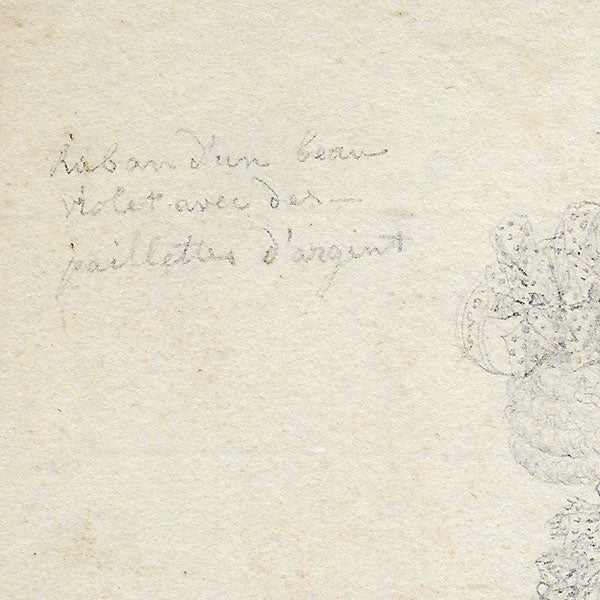 Ruban d'un beau
violet avec des —
paillettes d'argent